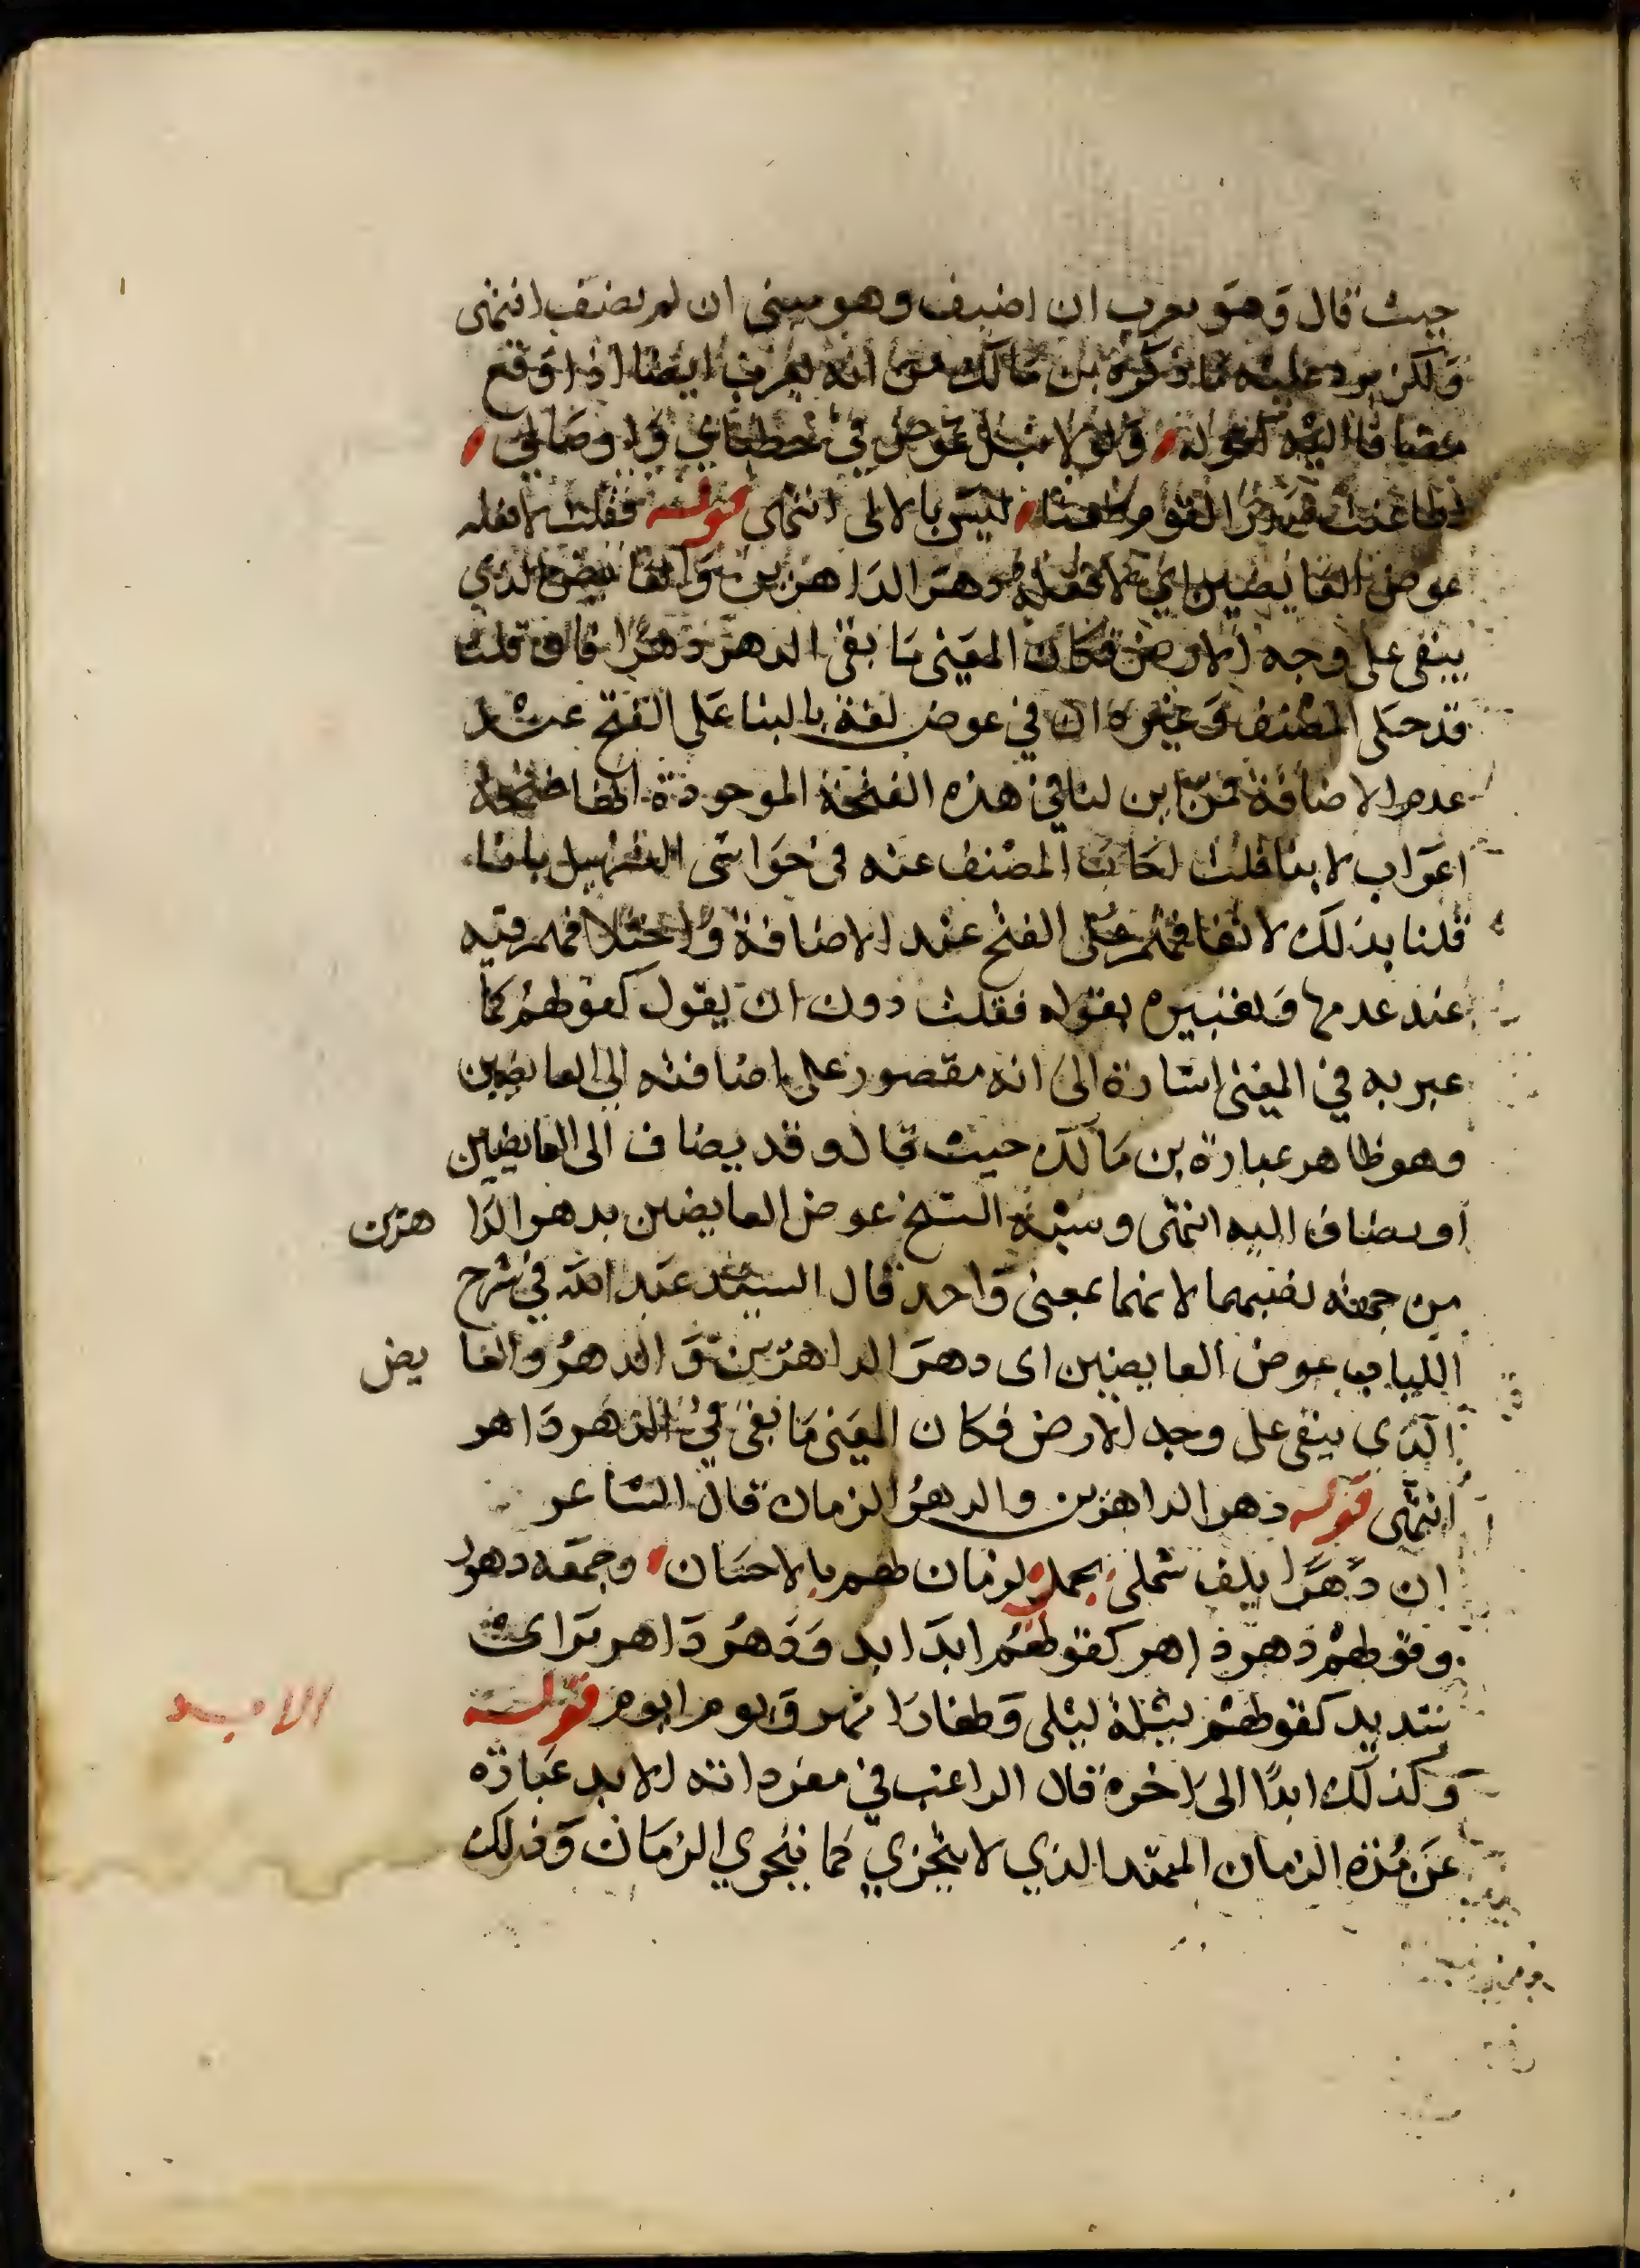 حيث قال وهو يعرب ان اضيف وهو مبنى ان لم يضف انتهى
ولكن يرد عليه ما ذكره بن مالك من انه يعرف ايضا اذا وقع
مضافا اليه كقوله ولولا نبل عوض في خطباي واوصالي
لطاعنت صدور القوم طعنا ليس بالالى انتهى قوله فقلت لا افعله
عوض العايضين اي لا افعله دهر الداهرين والعايض الذي
يبقى على وجه الارض فكان المعنى ما بقى الدهر دهرا فان قلت
قد حكى المصنف وغيره ان في عوض لغة بالبنا على الفتح عند
عدم الاضافة فمن اين لنا في هذه الفتحة الموجودة انها فتحة
اعراب لا بنا قلت اجاب المصنف عنه في حواشى التسهيل بانا
قلنا بذلك لاتفاقهم على الفتح عند الاضافة واختلافهم فيه
عند عدمها وتعبيره بقوله فقلت دون ان يقول كقولهم كما
عبر به في المغنى اشارة الى انه مقصور على اضافته الى العايضين
وهو ظاهر عبارة بن مالك حيث قال وقد يضاف الى العايضين
او يضاف اليه انتهى وشبه الشيخ عوض العايضين بدهر الداهرين
من جهة تفسيرهما لانهما بمعنى واحد قال السيد عبد الله في شرح
اللباب عوض العايضين اى دهر الداهرين والدهر والعايض
الذي يبقى على وجه الارض فكان المعنى ما بقى في الدهر داهر
انتهى قوله دهر الداهرين والدهر الزمان قال الشاعر
ان دهرا يلف شملي بجمل لزمان يهم بالاحسان وجمعه دهور
وقولهم دهر داهر كقولهم ابد ابد ودهر داهر براى
شديد كقولهم ليلة ليلى ونهار انهر ويوم ايوم قوله
الابد
وكذلك ابدا الى اخره قال الراغب في مفرداته الابد عبارة
عن مدة الزمان الممتد الذي لا يتجزي كما يتجزي الزمان وذلك